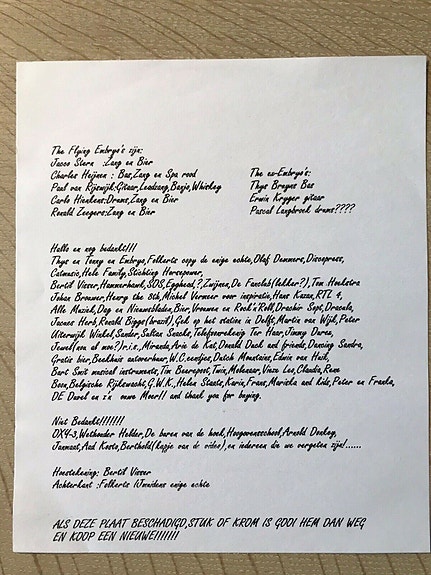 The Flying Embryo's zijn:
Jacco Stern :Zang en Bier
Charles Heijnen : Bas,Zang en Spa rood
Paul van Rijswijk:Gitaar,Leadzang,Banjo,Whiskey
Carlo Hienkens:Drums,Zang en Bier
Ronald Zeegers:Zang en Bier
The ex-Embryo's:
Thys Breyns Bas
Erwin Kryger gitaar
Pascal Langbroek drums????
Hallo en nog bedankt!!!
Thys en Tonny en Embryo,Folkerts copy de enige echte,Olaf Demmers,Discopress,
Catmusic,Hele Family,Stichting Horsepower,
Bertil Visser,Hammerhawk,SOS,Egghead,?,Zwijnen,De Fanclub(lekker?),Tom Hoekstra
Johan Brouwer,Henry the 8th,Michel Vermeer voor inspiratie,Hans Kazan,RTL 4,
Alle Muziek,Dag en Nieuwsbladen,Bier,Vrouwen en Rock'n'Roll,Drachir Sopt,Dracula,
Jacnes Herb,Ronald Biggs(brazil),Gek op het station in Delft,Martin van Wijk,Peter
Uiterwijk Winkel,Sander,Sultan Sussudio,Telefoonrekening Ter Haar,Jimmy Duran,
Uewel(nou al moe?)r.i.s,Miranda,Arie de Kat,Donald Duck and friends,Dancing Sandra,
Gratis bier,Beekhuis autoverhuur,W.C.eendjes,Dutch Mountains,Edwin van Huik,
Bart Smit musical instruments,Tim Beerepoot,Twin,Molenaar,Vieze Leo,Claudia,Rene
Boon,Belgische Rijkswacht,G.W.K.,Helen Staats,Karin,Frans,Mariska and kids,Peter en Franka,
DE Duvel en z.n ouwe Moer!! and thank you for buying.
Niet Bedankt!!!!!!!
OX4-3,Wethouder Helder,De buren van de hoek,Hoogovensschool,Arnold Donkey,
Janmaat,Aad Kosto,Berthold(kapje van de video),en iedereen die we vergeten zijn!......
Hoestekening: Bertil Visser
Achterkant :Folkerts
enige echte
ALS DEZE PLAAT BESCHADIGD,STUK OF KROM IS GOOI HEM DAN WEG
EN KOOP EEN NIEUWE!!!!!!!